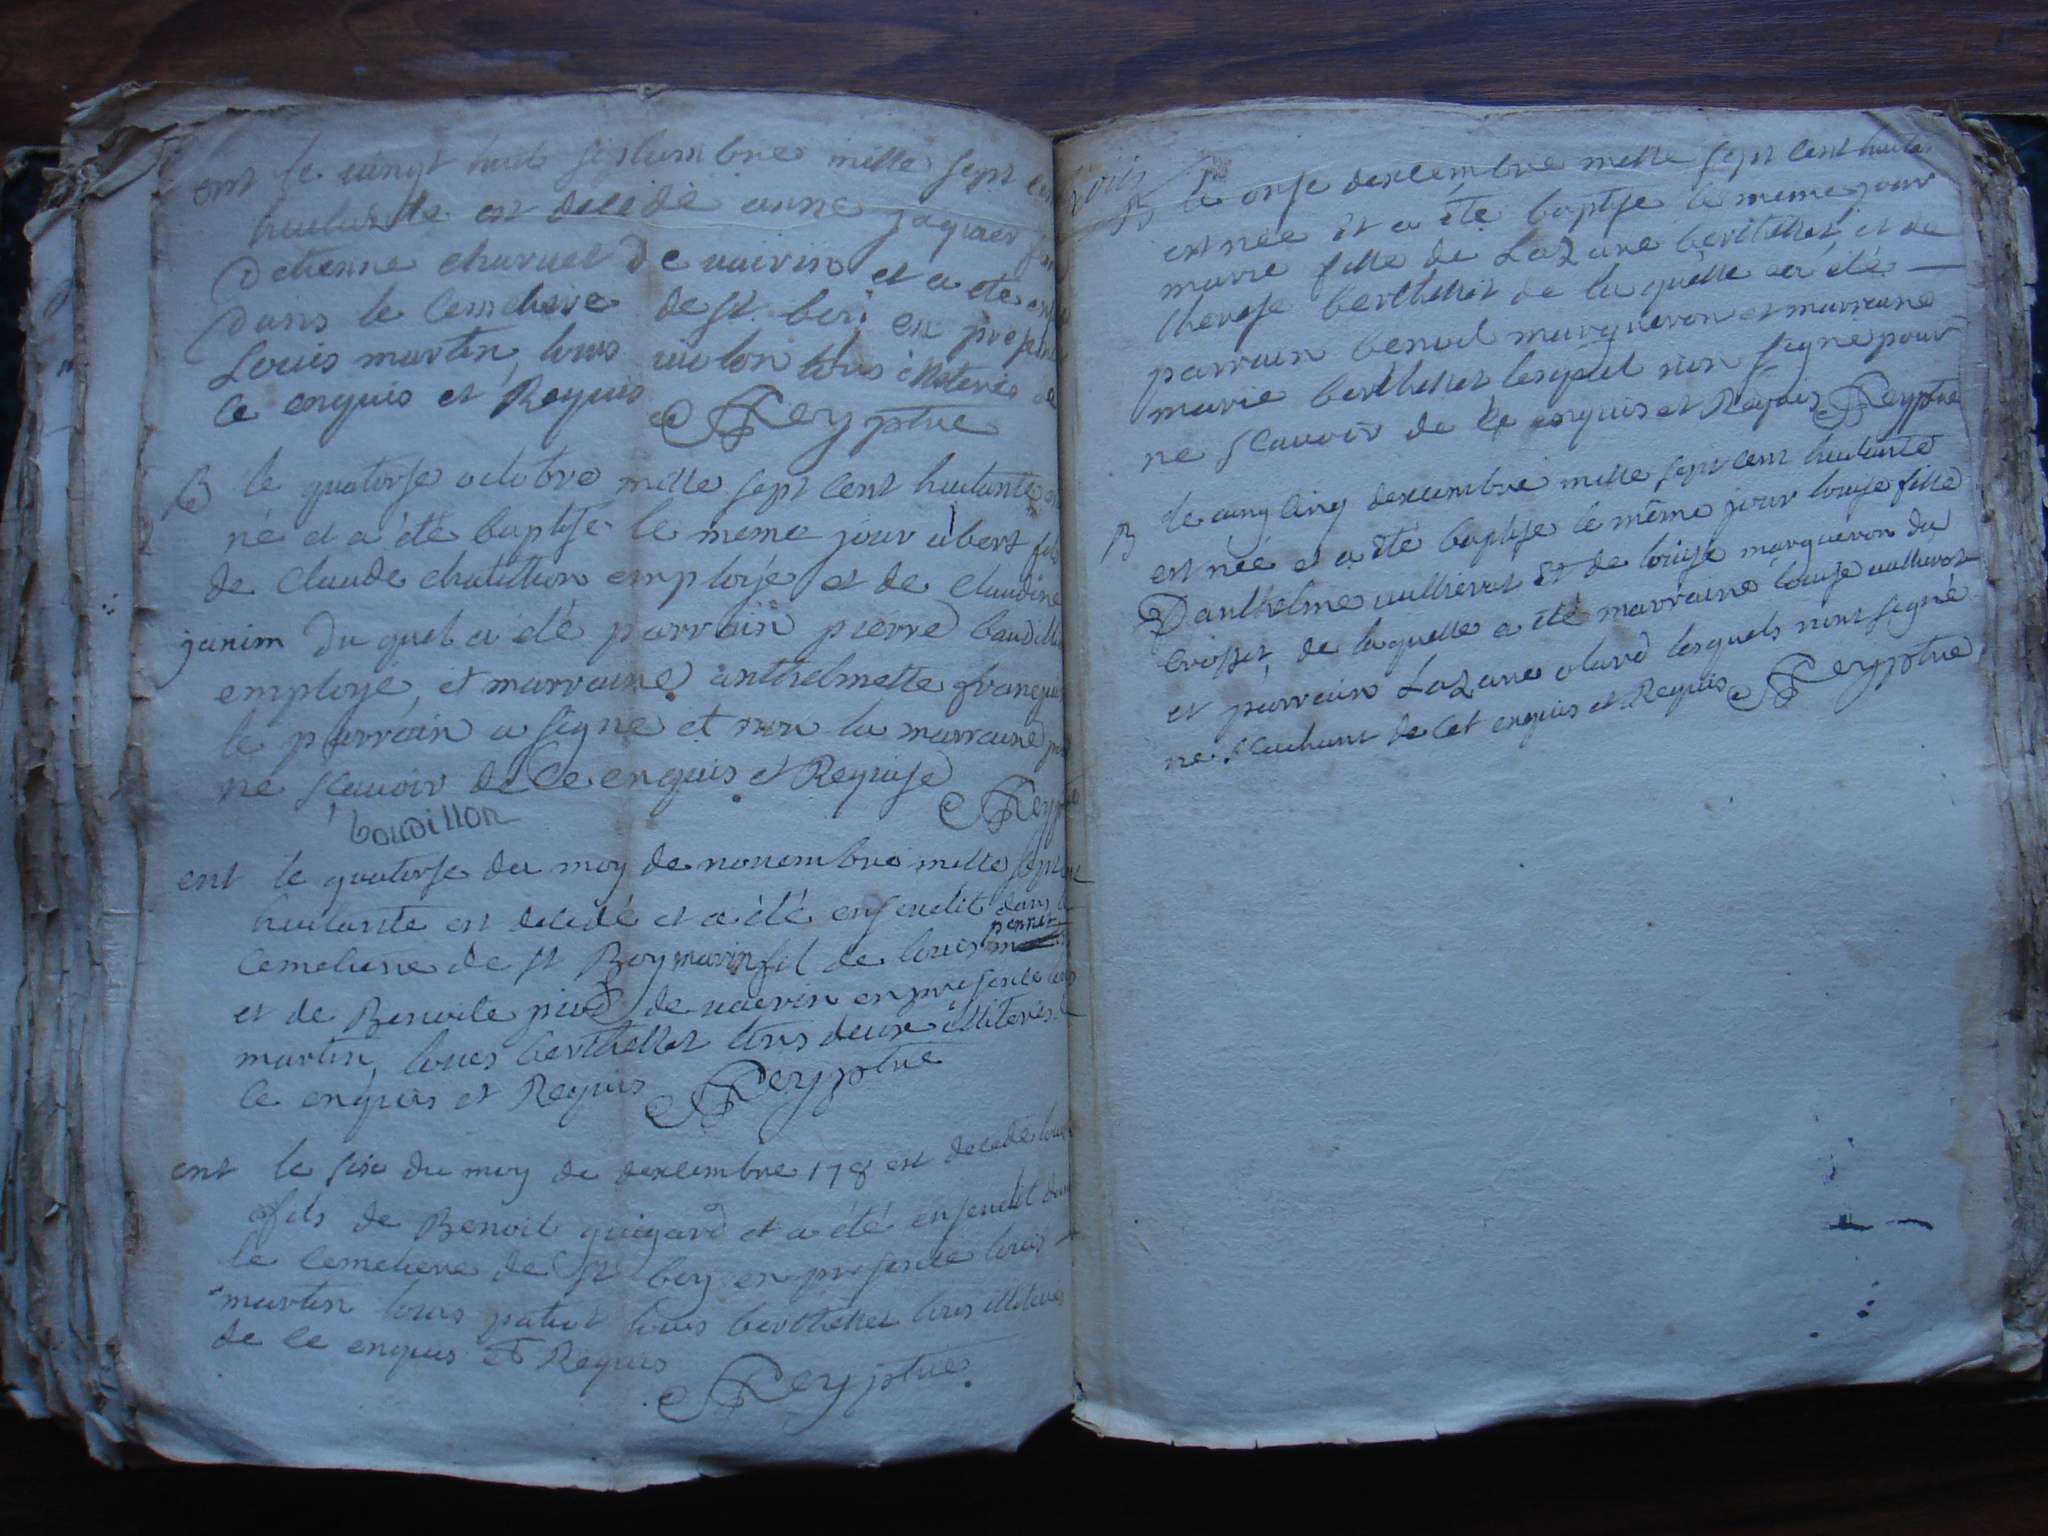 ent le vingt huit septembre mille sept cen
huitante est decedé anne jaquier
Detienne charvet De vairin et a eté
Dans le cemetiere de st boi en presen
Louis martin, louis violon tous illiterés de
ce enquis et Requis Rey ptre
B le quatorse octobre mille sept cent huitante
né et a été baptise le meme jour abert
de Claude chatillion employé et de claudine
janim du quel a eté parrain pierre baudill
employé, et marraine anthelmette françois
le parrain a signe et non la marraine
ne sçavoir de ce enquis et Requise Rey
boudillon
ent le quatorse du moy de novembre mille sept
huitante est decedé et a été ensevelit dans
cemetiere de st Boy marin fil de louis perret
et de Benoite pivd de vairin en presence
martin, louis berthellet tous deux illiterés
ce enquis et Requis Rey ptre
ent le six du moy de dexcembre 178 est decedé
fils de Benoit guigard et a été ensevelit
le cemetiere de st boy en presence louis
martin louis patiot louis berthellet tous illiteres
de ce enquis et Requis
Rey ptre
B le onse dexcembre mille sept cent huitan
est née et a été baptise le meme jour
marie fille de Lazare berthellet, et de
therese berthellet de la quelle a été
parrain benoit marqueron et marraine
marie berthellet lesquel non signé pour
ne sçavoir de ce enquis et Requis Rey ptre
B le cinq dexcembre mille sept cent huitante
est née et a été baptise le même jour louise fille
Danthelme vullierot et de louise marqueron du
crosset, de laquelle a été marraine louise vullierot
et parrain Lazare olard lesquels nont signé
ne scachant de cet enquis et Requis Rey ptre